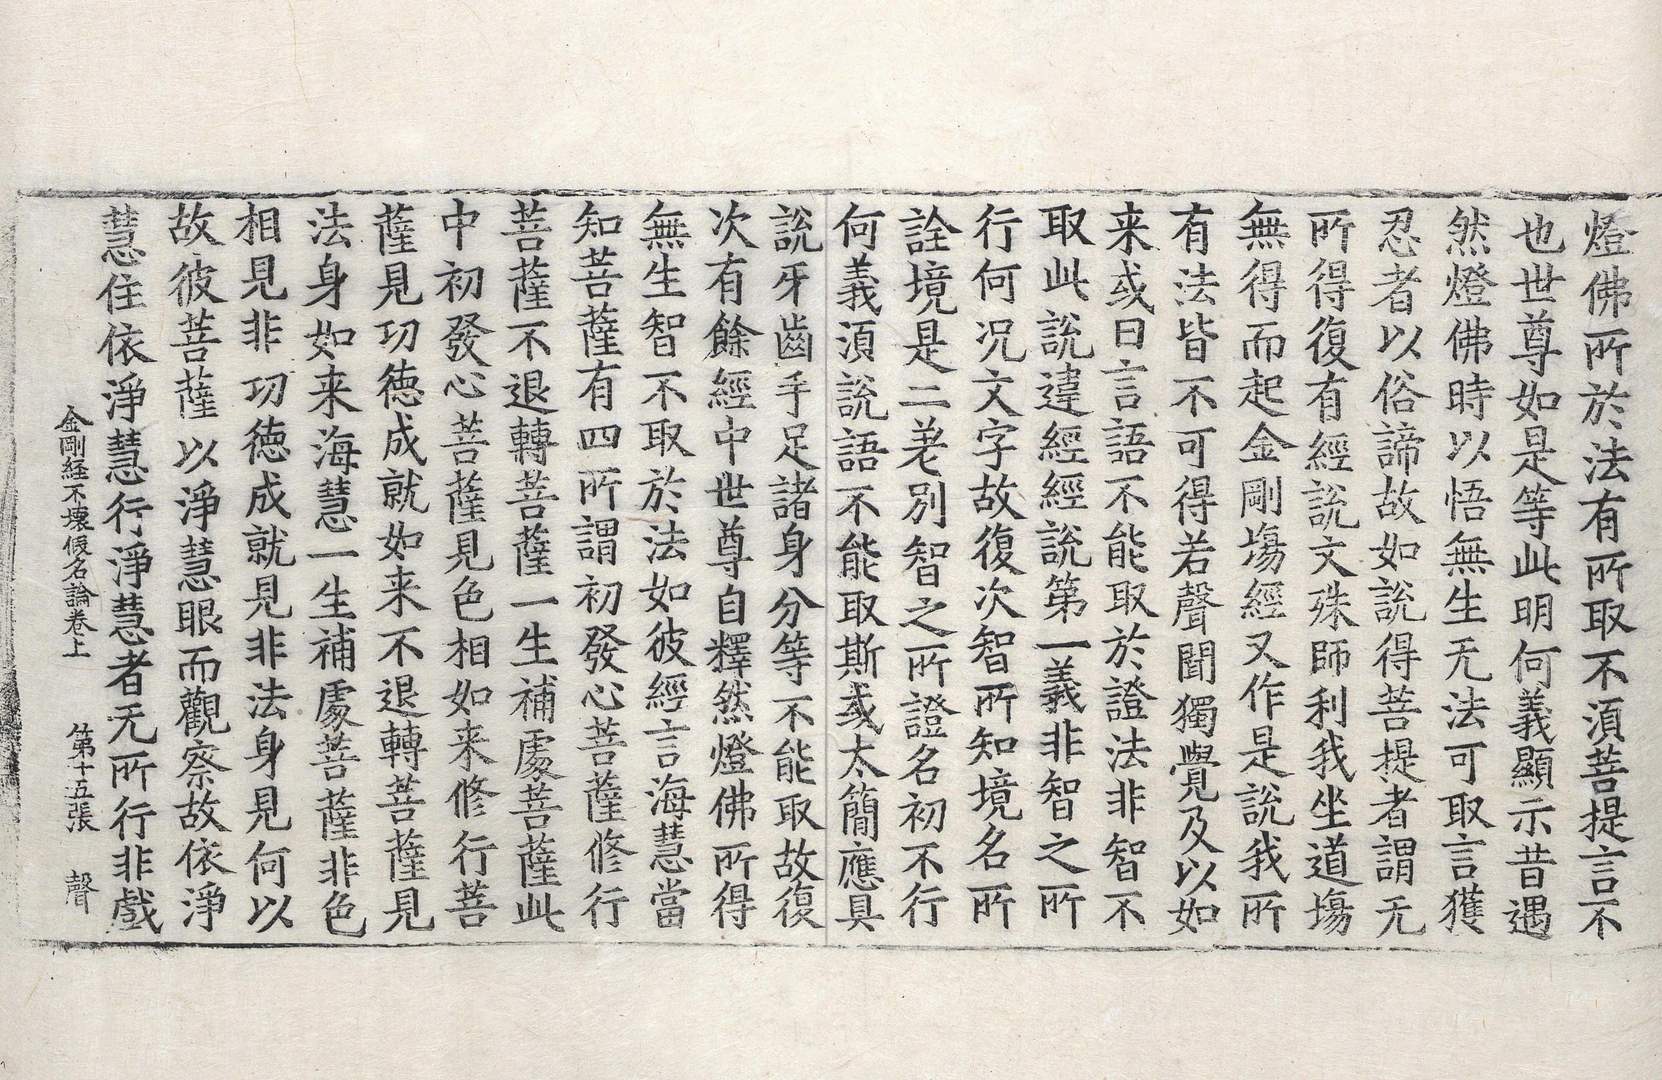 燈佛所於法有所取不須菩提言不
也世尊如是等此明何義顯示昔遇
然燈佛時以悟無生无法可取言獲
忍者以俗諦故如說得菩提者謂无
所得復有經說文殊師利我坐道場
無得而起金剛場經又作是說我所
有法皆不可得若聲聞獨覺及以如
来或曰言語不能取於證法非智不
取此說違經經說第一義非智之所
行何況文字故復次智所知境名所
詮境是二差別智之所證名初不行
何義須說語不能取斯或太簡應具
說牙齒手足諸身分等不能取故復
次有餘經中世尊自釋然燈佛所得
無生智不取於法如彼經言海慧當
知菩薩有四所謂初發心菩薩修行
菩薩不退轉菩薩一生補處菩薩此
中初發心菩薩見色相如来修行菩
薩見功德成就如来不退轉菩薩見
法身如来海慧一生補處菩薩非色
相見非功德成就見非法身見何以
故彼菩薩以淨慧眼而觀察故依淨
慧住依淨慧行淨慧者无所行非戲
金剛經不壞假名論卷上　第十五張　聲